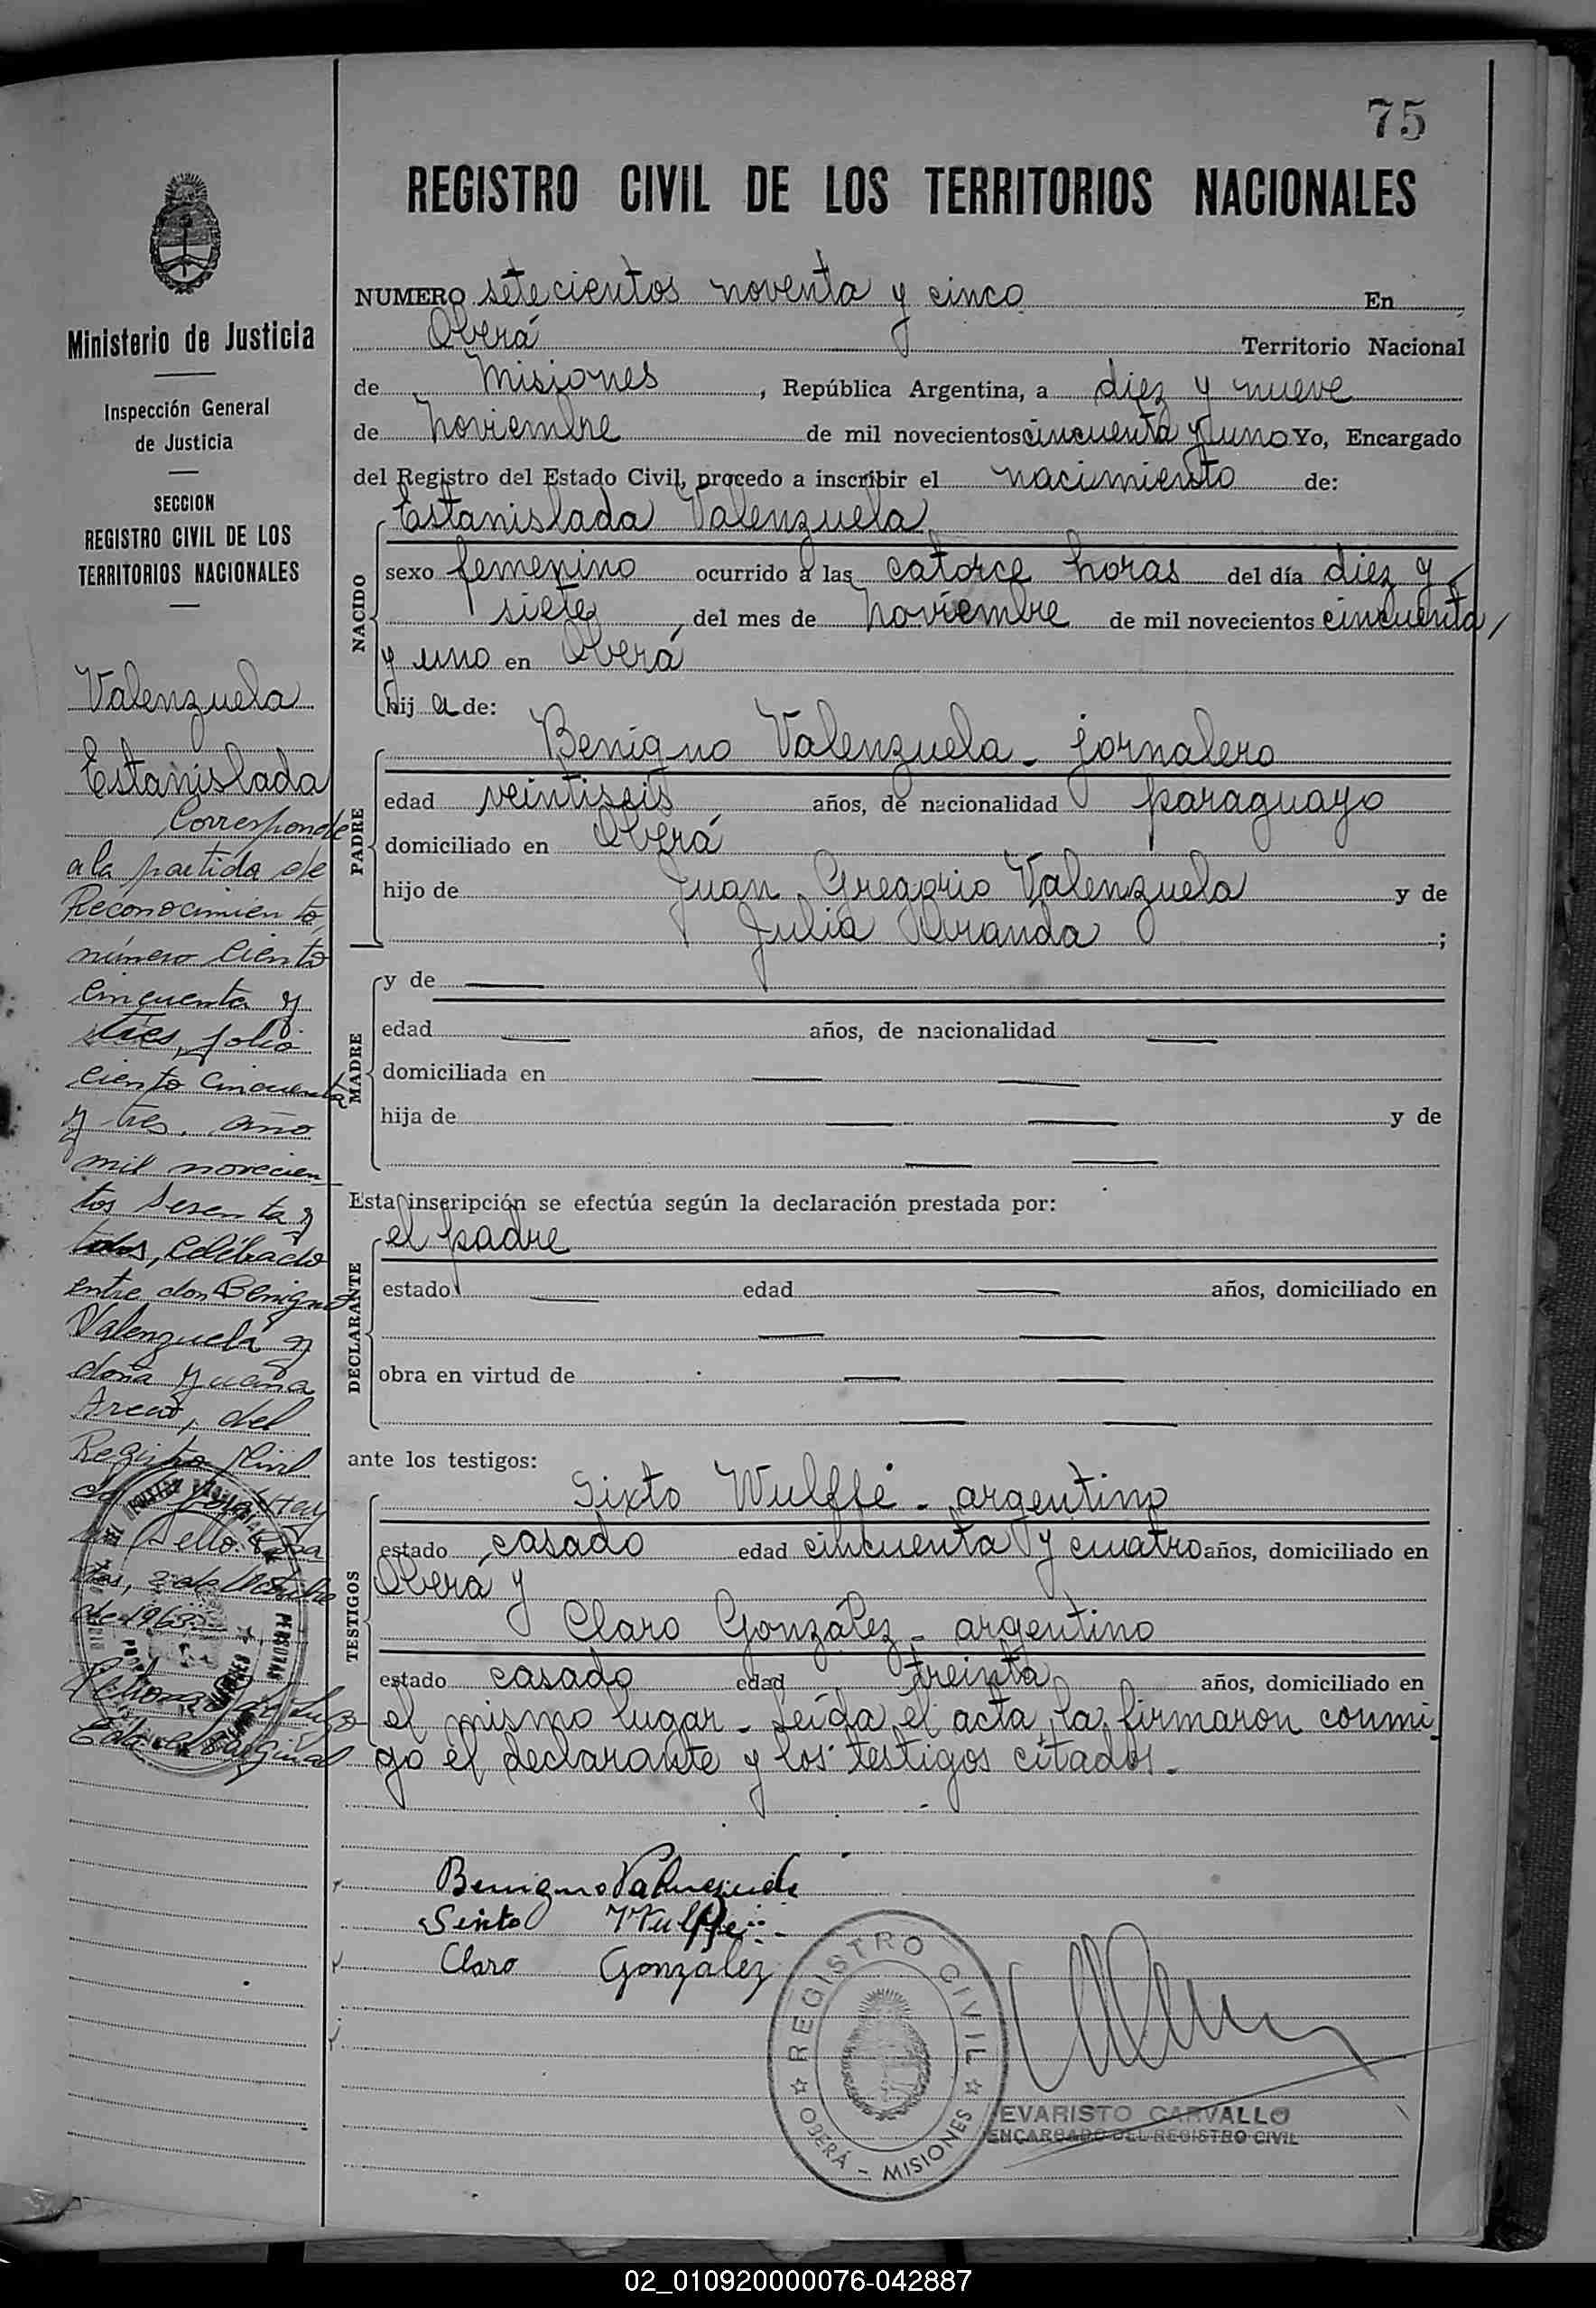 75
REGISTRO CIVIL DE LOS TERRITORIOS NACIONALES
NUMERO setecientos noventa y cinco En
Oberá Territorio Nacional
de Misiones, República Argentina, a diez y nueve
de Noviembre de mil novecientos cincuenta y uno Yo, Encargado
del Registro del Estado Civil, procedo a inscribir el nacimiento de:
NACIDO
Estanislada Valenzuela
sexo femenino ocurrido a las catorce horas del día diez y
siete, del mes de Noviembre de mil novecientos cincuenta
y uno en Oberá
hij a de:
PADRE
Benigno Valenzuela - jornalero
edad veintiseis años, de nacionalidad paraguayo
domiciliado en Oberá
hijo de Juan Gregorio Valenzuela y de
Julia Miranda ;
MADRE
y de
edad años, de nacionalidad
domiciliada en
hija de y de
Esta inscripción se efectúa según la declaración prestada por:
DECLARANTE
el padre
estado edad años, domiciliado en
obra en virtud de
ante los testigos:
TESTIGOS
Sixto Wulffe - argentino
estado casado edad cincuenta y cuatro años, domiciliado en
Oberá y
Claro González - argentino
estado casado edad treinta años, domiciliado en
el mismo lugar - Leída el acta, la firmaron conmi
go el declarante y los testigos citados.
Benigno Valenzuela
Sixto Wulffe
Claro González
REGISTRO CIVIL
OBERÁ - MISIONES
EVARISTO CARVALLO
ENCARGADO DEL REGISTRO CIVIL
Ministerio de Justicia
Inspección General
de Justicia
SECCION
REGISTRO CIVIL DE LOS
TERRITORIOS NACIONALES
Valenzuela
Estanislada
Corresponde
a la partida de
Reconocimiento
número ciento
cincuenta y
tres, folio
ciento cincuenta
y tres, año
mil novecien
tos sesenta y
dos, celebrado
entre don Benigno
Valenzuela y
doña Juana
del
Registro Civil
Sello.
de 1963
02_010920000076-042887